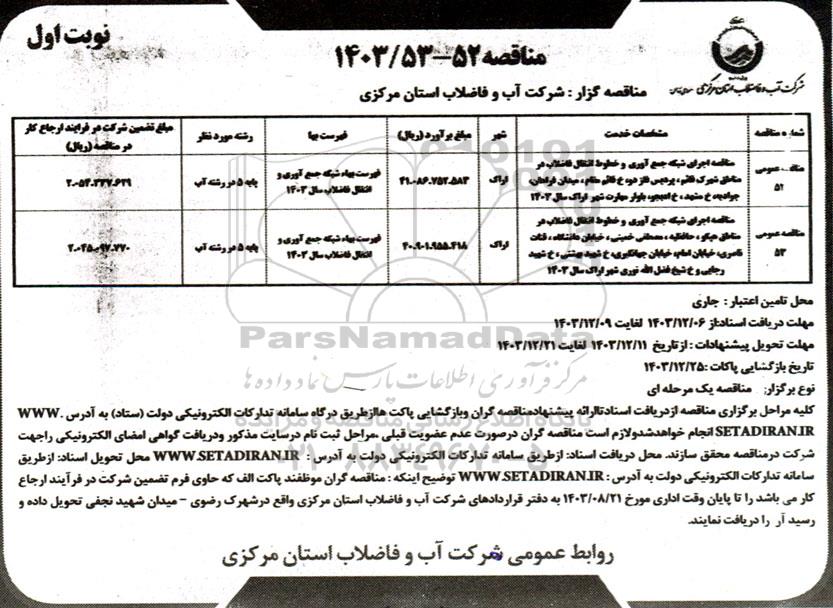 نوبت اول
مناقصه ۵۲-۱۴۰۳/۵۳
شرکت آب و فاضلاب استان مرکزی
مناقصه گزار : شرکت آب و فاضلاب استان مرکزی
شماره مناقصه	مشخصات خدمت	شهر	مبلغ برآورد (ریال)	فهرست بها	رشته مورد نظر	مبلغ تضمین شرکت در فرایند ارجاع کار در مناقصه (ریال)
مناقصه عمومی
۵۲
مناقصه اجرای شبکه جمع آوری و خطوط انتقال فاضلاب در
مناطق شهرک قائم، پردیس فلز دو، خ قائم مقام، میدان فراهان
جوادیه، خ مشهد، خ امیدجو، بلوار مهارت شهر اراک سال ۱۴۰۳
اراک
۴۱،۰۸۶،۷۵۲،۵۸۳
فهرست بهاء شبکه جمع آوری و
انتقال فاضلاب سال ۱۴۰۳
پایه ۵ در رشته آب
۲،۰۵۴،۳۳۷،۶۲۹
مناقصه عمومی
۵۳
مناقصه اجرای شبکه جمع آوری و خطوط انتقال فاضلاب در
مناطق هپکو ، حافظیه ، مصطفی خمینی ، خیابان دانشگاه ، قنات
ناصری، خیابان امام، خیابان جهانگیری، خ شهید بهشتی ، خ شهید
رجایی و خ شیخ فضل الله نوری شهر اراک سال ۱۴۰۳
اراک
۴۰،۹۰۱،۹۵۵،۴۱۸
فهرست بهاء شبکه جمع آوری و
انتقال فاضلاب سال ۱۴۰۳
پایه ۵ در رشته آب
۲،۰۴۵،۰۹۷،۷۷۰
محل تامین اعتبار : جاری
مهلت دریافت اسناد:از ۱۴۰۳/۱۲/۰۶ لغایت ۱۴۰۳/۱۲/۰۹
مهلت تحویل پیشنهادات : ازتاریخ ۱۴۰۳/۱۲/۱۱ لغایت ۱۴۰۳/۱۲/۲۱
تاریخ بازگشایی پاکات : ۱۴۰۳/۱۲/۲۵
نوع برگزار: مناقصه یک مرحله ای
کلیه مراحل برگزاری مناقصه ازدریافت اسنادتاارائه پیشنهادمناقصه گران وبازگشایی پاکت هاازطریق درگاه سامانه تدارکات الکترونیکی دولت (ستاد) به آدرس WWW.
SETADIRAN.IR انجام خواهدشدولازم است مناقصه گران درصورت عدم عضویت قبلی ،مراحل ثبت نام درسایت مذکور ودریافت گواهی امضای الکترونیکی راجهت
شرکت درمناقصه محقق سازند. محل دریافت اسناد: ازطریق سامانه تدارکات الکترونیکی دولت به آدرس : WWW.SETADIRAN.IR محل تحویل اسناد: ازطریق
سامانه تدارکات الکترونیکی دولت به آدرس : WWW.SETADIRAN.IR توضیح اینکه : مناقصه گران موظفند پاکت الف که حاوی فرم تضمین شرکت در فرآیند ارجاع
کار می باشد را تا پایان وقت اداری مورخ ۱۴۰۳/۰۸/۲۱ به دفتر قراردادهای شرکت آب و فاضلاب استان مرکزی واقع درشهرک رضوی - میدان شهید نجفی تحویل داده و
رسید آن را دریافت نمایند.
روابط عمومی شرکت آب و فاضلاب استان مرکزی
ParsNamadData
مرکز فرآوری اطلاعات پارس نماد داده ها
پایگاه اطلاع رسانی مناقصه و مزایده